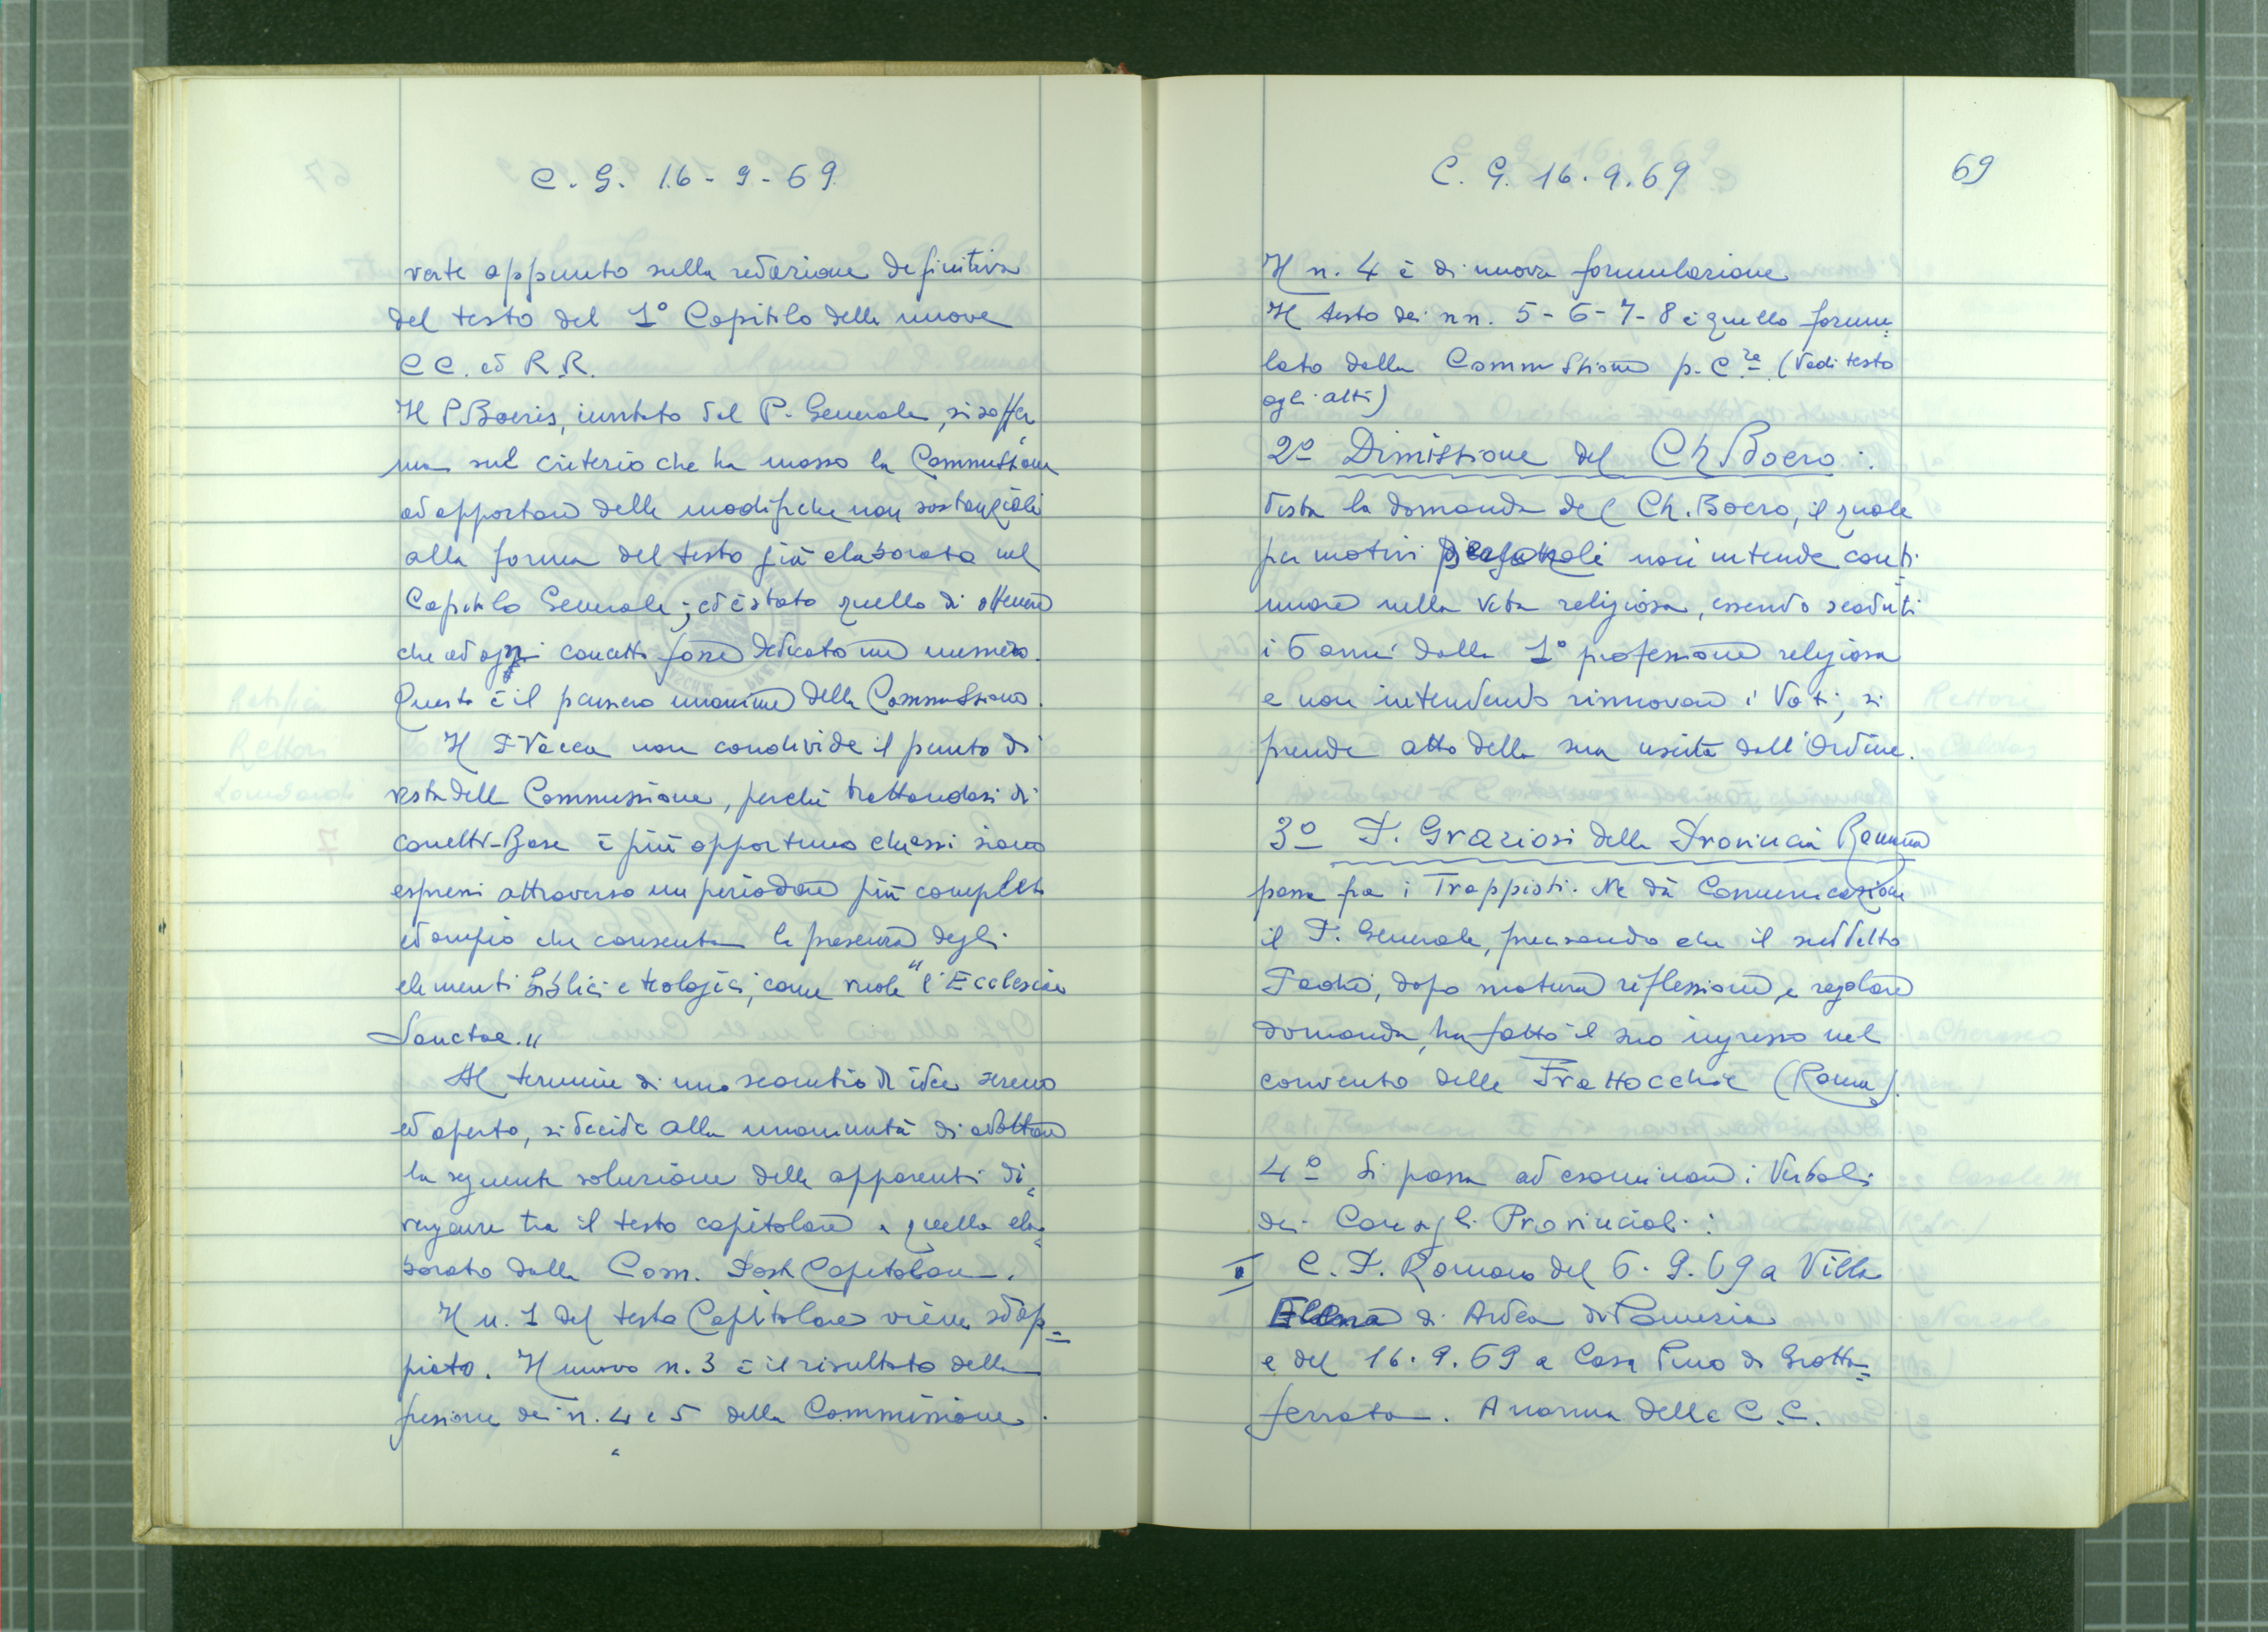 C. G. 16-9-69
verte appunto sulla redazione definitiva
del testo del 1° Capitolo delle nuove
CC. ed R.R.
Il P. Boeris, invitato dal P. Generale, si soffer
ma sul criterio che ha mosso la Commissione
ad apportare delle modifiche non sostanziali
alla forma del testo già elaborato nel
Capitolo Generale; ed è stato quello di ottenere
che ad ogni concetto fosse dedicato un numero.
Questo è il pensiero unanime della Commissione.
Il P. Vacca non condivide il punto di
vista della Commissione, perché trattandosi di
concetti-Base è più opportuno che essi siano
espressi attraverso un periodare più completo
ed ampio che consenta la presenza degli
elementi biblici e teologici, come vuole "l'Ecclesiae
Sanctae."
Al termine di uno scambio di idee sereno
ed aperto, si decide alla unanimità di adottare
la seguente soluzione delle apparenti di=
vergenze tra il testo capitolare e quello ela=
borato dalla Com. Post Capitolare.
Il n. 1 del testo Capitolare viene sdop=
piato. Il nuovo n. 3 è il risultato della
fusione dei n. 4 e 5 della Commissione.
C. G. 16.9.69
69
Il n. 4 è di nuova formulazione
Il testo dei nn. 5-6-7-8 è quello formu=
lato dalla Commissione p. C.re (Vedi testo
agli atti)
2° Dimissione del Ch. Boero:
Vista la domanda del Ch. Boero, il quale
per motivi personali non intende conti
nuare nella vita religiosa, essendo scaduti
i 6 anni dalla 1° professione religiosa
e non intendendo rinnovare i Voti, si
prende atto della sua uscita dall'Ordine.
3° P. Graziosi della Provincia Romana
passa fra i Trappisti. Ne dà Comunicazione
il P. Generale, precisando che il suddetto
Padre, dopo matura riflessione e regolare
domanda, ha fatto il suo ingresso nel
convento delle Frattocchie (Roma).
4° Si passa ad esaminare i Verbali
dei Consigli Provinciali:
I C. P. Romano del 6.9.69 a Villa
Elena di Ardea di Pomezia
e del 16.9.69 a Casa Pino di Grotta=
ferrata. A norma delle C.C.